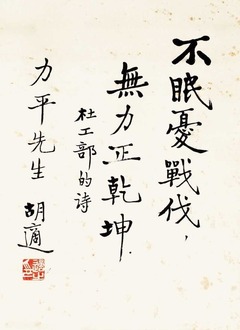 不眠憂戰伐，
無力正乾坤.
杜工部的诗
力平先生
胡適